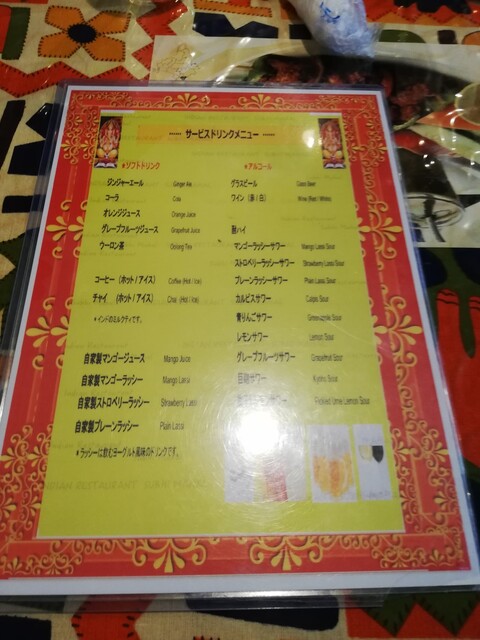 …… サービスドリンクメニュー ……
★ソフトドリンク
ジンジャーエール Ginger Ale
コーラ Cola
オレンジジュース Orange Juice
グレープフルーツジュース Grapefruit Juice
ウーロン茶 Oolong Tea
コーヒー (ホット / アイス) Coffee (Hot / Ice)
チャイ (ホット / アイス) Chai (Hot / Ice)
★インドのミルクティです。
自家製マンゴージュース Mango Juice
自家製マンゴーラッシー Mango Lassi
自家製ストロベリーラッシー Strawberry Lassi
自家製プレーンラッシー Plain Lassi
★ラッシーは飲むヨーグルト風味のドリンクです。
★アルコール
グラスビール Glass Beer
ワイン (赤 / 白) Wine (Red / White)
酎ハイ
マンゴーラッシーサワー Mango Lassi Sour
ストロベリーラッシーサワー Strawberry Lassi Sour
プレーンラッシーサワー Plain Lassi Sour
カルピスサワー Calpis Sour
青りんごサワー Greenapple Sour
レモンサワー Lemon Sour
グレープフルーツサワー Grapefruit Sour
巨峰サワー Kyoho Sour
レモンサワー Pickled Ume Lemon Sour